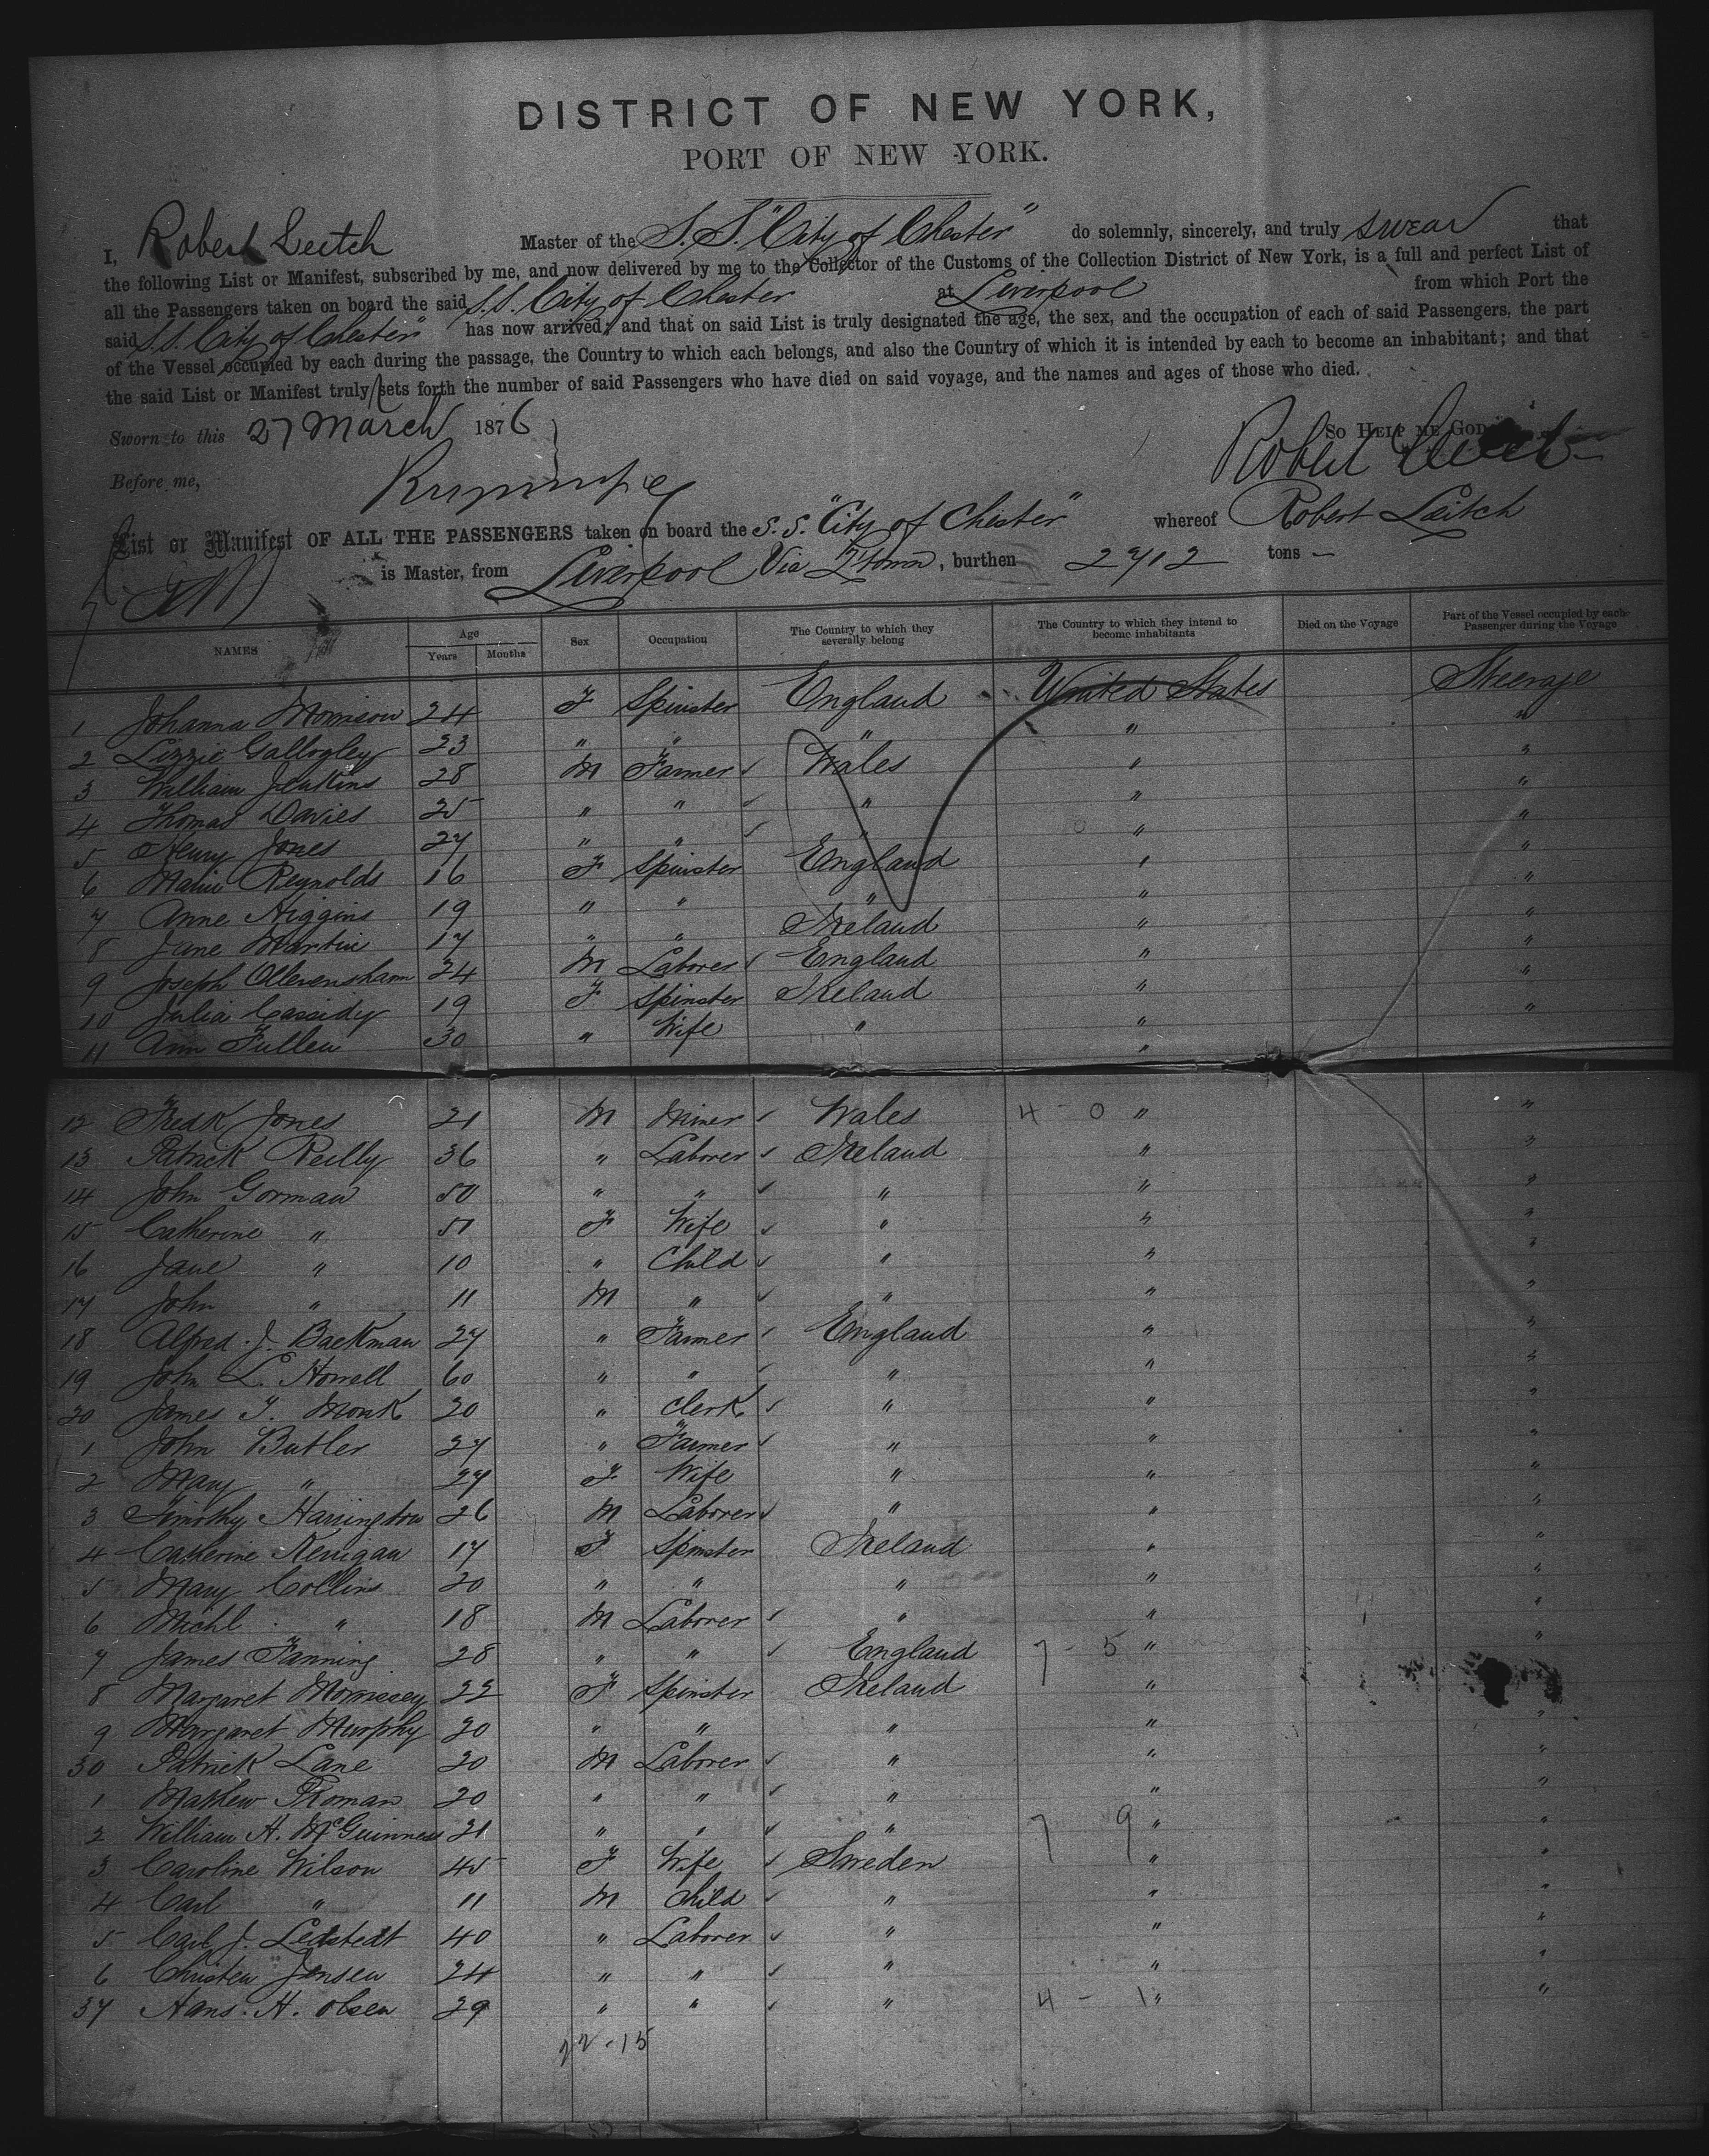 DISTRICT OF NEW YORK,
PORT OF NEW YORK.
I, Robert Leitch Master of the S.S. "City of Chester" do solemnly, sincerely, and truly swear that
the following List or Manifest, subscribed by me, and now delivered by me to the Collector of the Customs of the Collection District of New York, is a full and perfect List of
all the Passengers taken on board the said S.S. City of Chester at Liverpool from which Port the
said S.S. City of Chester" has now arrived; and that on said List is truly designated the age, the sex, and the occupation of each of said Passengers, the part
of the Vessel occupied by each during the passage, the Country to which each belongs, and also the Country of which it is intended by each to become an inhabitant; and that
the said List or Manifest truly sets forth the number of said Passengers who have died on said voyage, and the names and ages of those who died.
Sworn to this 27 March 1876 So HELP ME GOD
Before me, Robert Leitch
List or Manifest OF ALL THE PASSENGERS taken on board the S.S. "City of Chester" whereof Robert Leitch
is Master, from Liverpool Via Qtown, burthen 2712 tons
NAMES Age Years Months Sex Occupation The Country to which they severally belong The Country to which they intend to become inhabitants Died on the Voyage Part of the Vessel occupied by each Passenger during the Voyage
1 Johanna Morrison 24 F Spinster England United States Steerage
2 Lizzie Gallogley 23 " " " " "
3 William Jenkins 28 M Farmer Wales " "
4 Thomas Davies 25 " " " " "
5 Henry Jones 27 " " " " "
6 Reynolds 16 F Spinster England " "
7 Anne Higgins 19 " " " " "
8 Jane Martin 17 " " Ireland " "
9 Joseph 24 M Laborer England " "
10 Julia Cassidy 19 F Spinster Ireland " "
11 Ann Fullen 30 " Wife " " "
12 Fredk Jones 21 M Miner Wales 4 - 0 " "
13 Patrick Reilly 36 " Laborer Ireland " "
14 John Gorman 50 " " " " "
15 Catherine " 51 F Wife " " "
16 Jane " 10 " Child " " "
17 John " 11 M " " " "
18 Alfred J. Backman 27 " Farmer England " "
19 John L. Howell 60 " " " " "
20 James T. Monk 20 " Clerk " " "
1 John Butler 27 " Farmer " " "
2 Mary " 27 F Wife " " "
3 Timothy Harrington 26 M Laborer " " "
4 Catherine Kerrigan 17 F Spinster Ireland " "
5 Mary Collins 20 " " " " "
6 Michl " 18 M Laborer " " "
7 James Fanning 28 " " England 7 - 5 " "
8 Margaret Morrissey 22 F Spinster Ireland " "
9 Margaret Murphy 20 " " " " "
30 Patrick Lane 20 M Laborer " " "
1 Mathew 20 " " " " "
2 William H. McGuinness 21 " " " 7 9 " "
3 Caroline Wilson 45 F Wife Sweden " "
4 Carl " 11 M Child " " "
5 Carl J. Ledstedt 40 " Laborer " " "
6 Christen Jensen 24 " " " " "
37 Hans. H. Olsen 29 " " " 4 - 1 " "
22 - 15